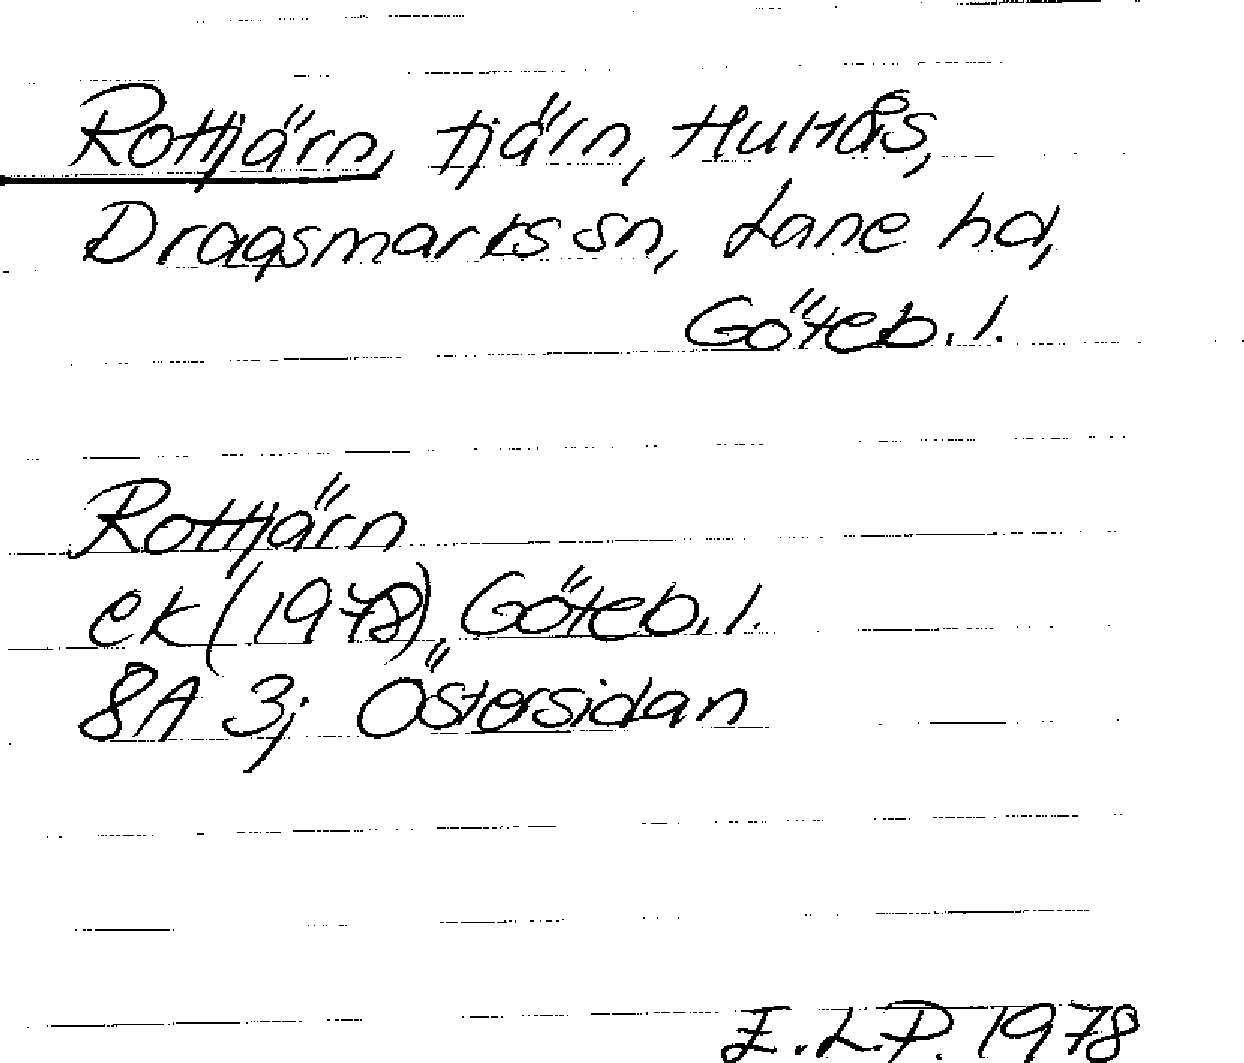 Rottjärn, tjärn, Hultås,
Dragsmarks sn, Lane hd,
Göteb. l.
Rottjärn
ek (1978), Göteb. l.
8A 3j Östersidan
E.L.P. 1978